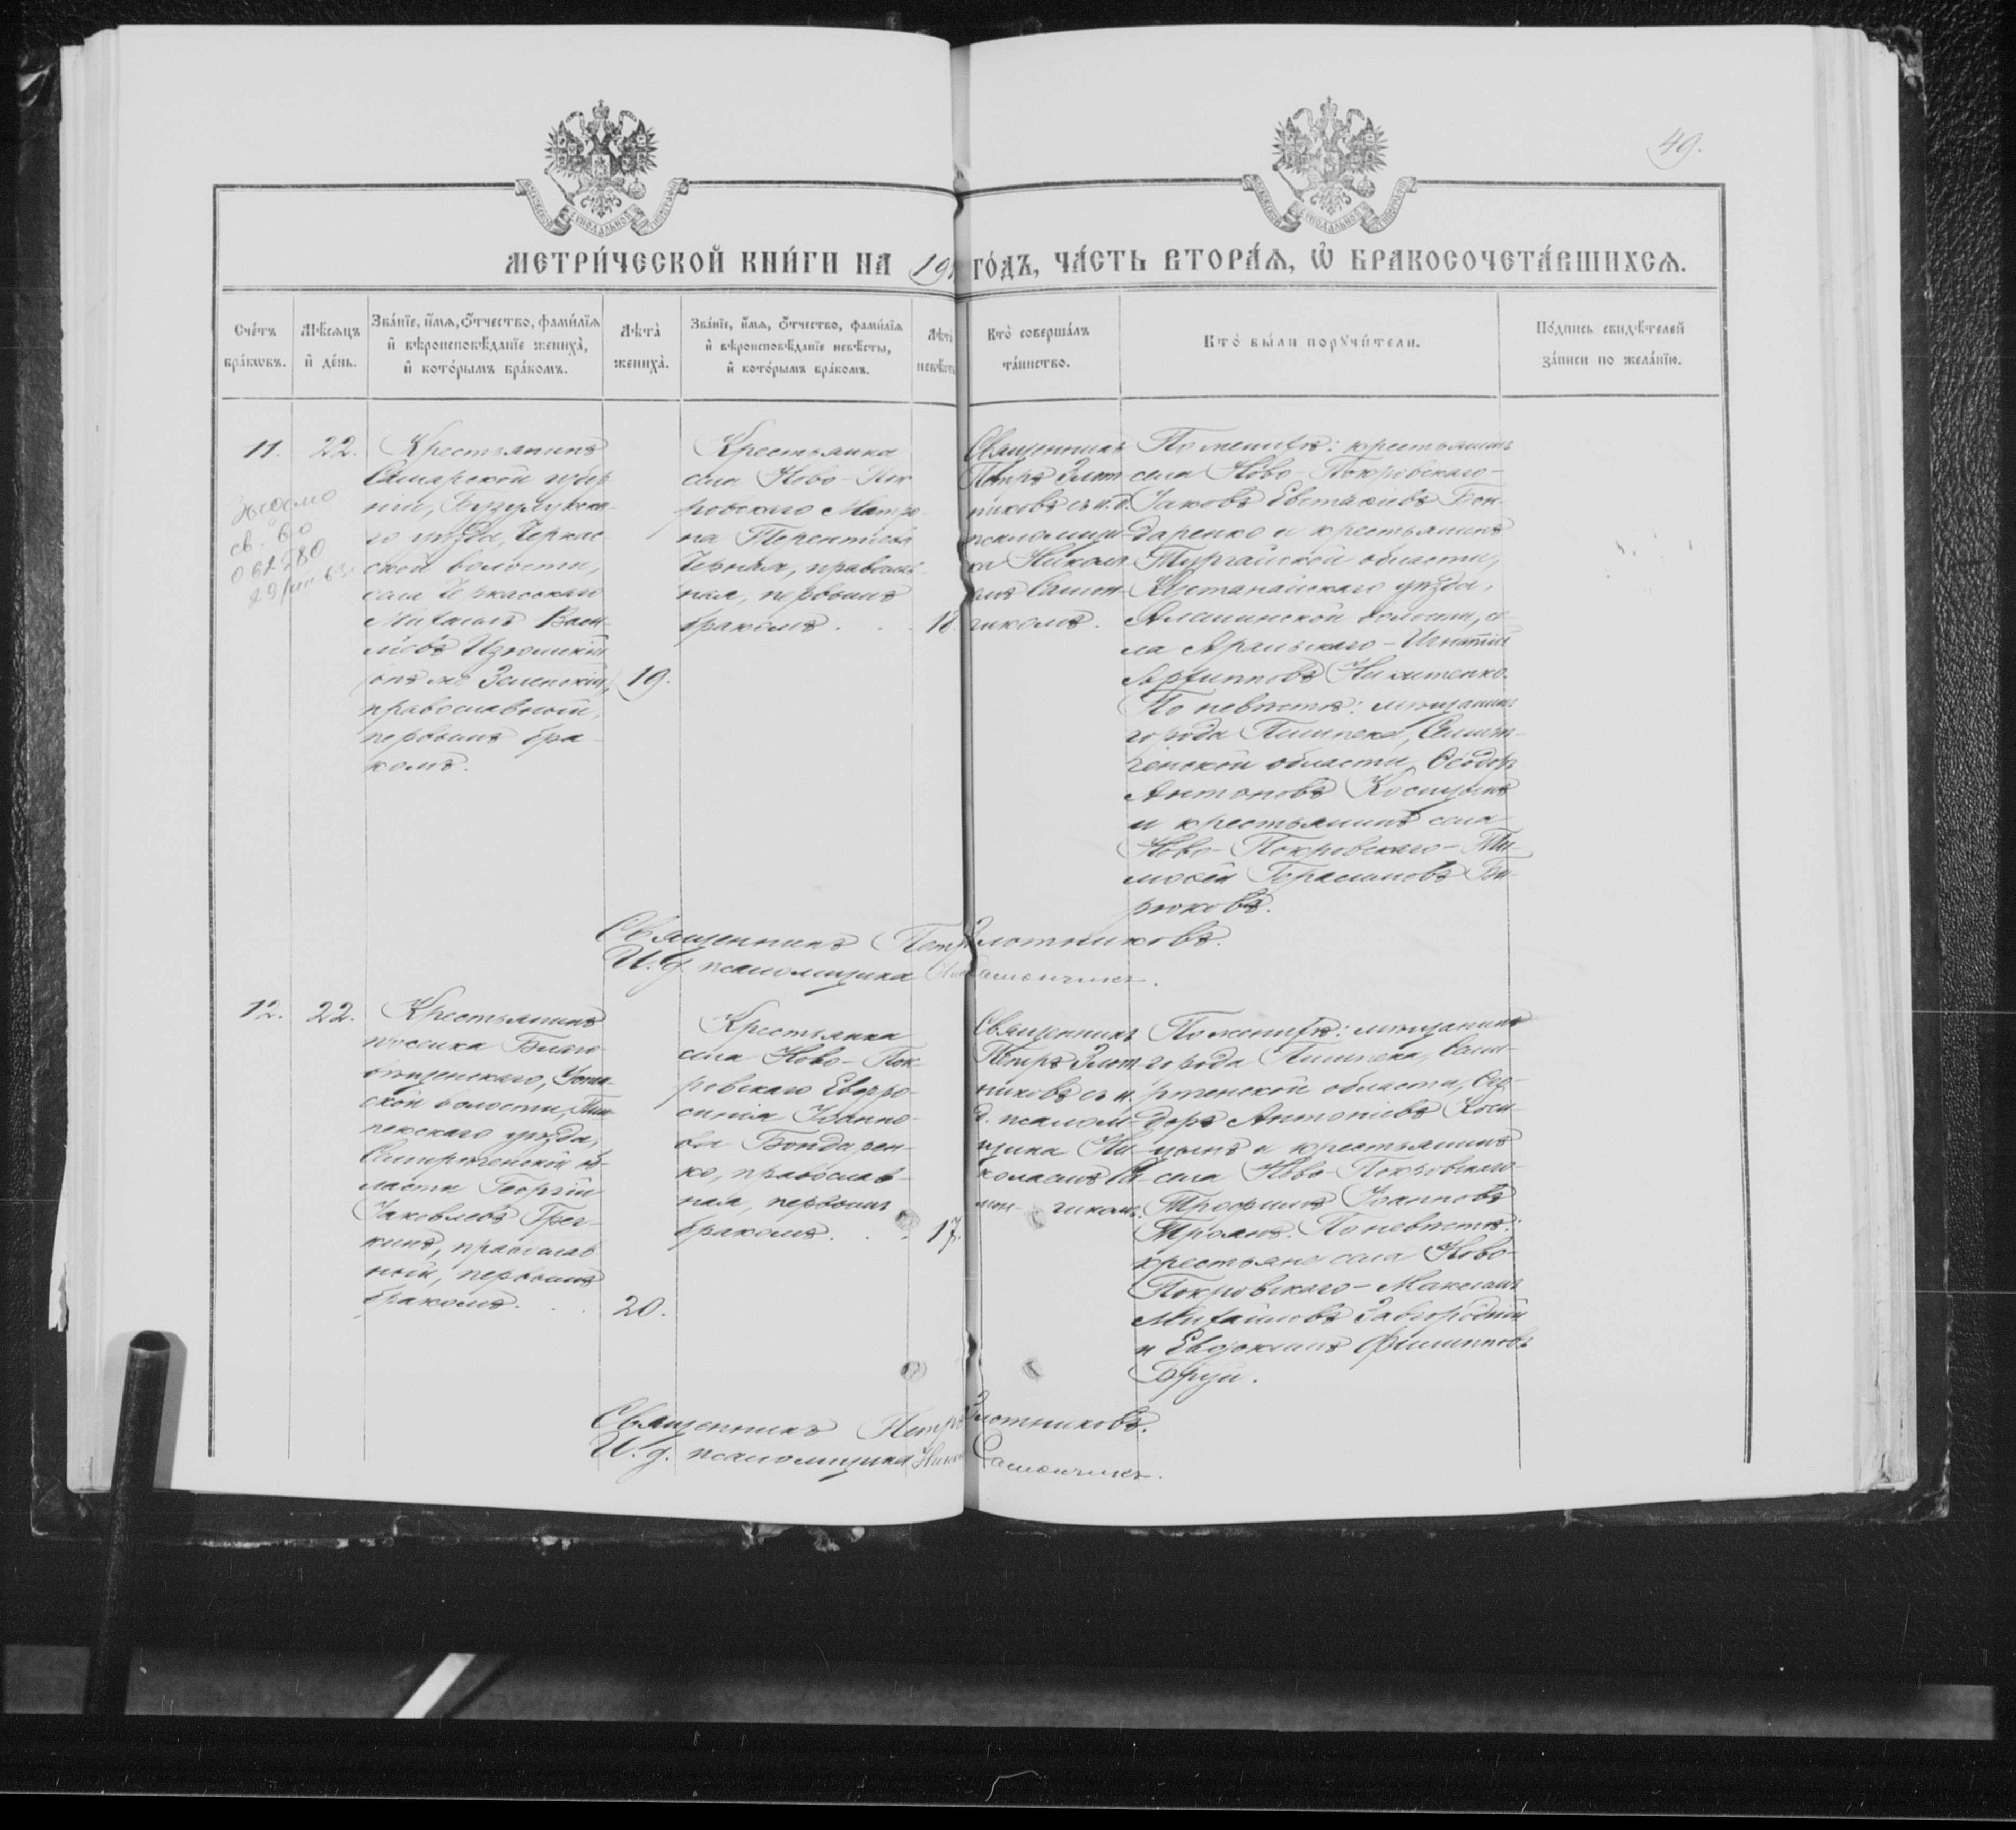 49.
МЕТРИ́ЧЕСКОЙ КНИ́ГИ НА 191 ГО́ДЪ, ЧА́СТЬ ВТОРА́Ѧ, Ѡ҆ БРАКОСОЧЕТА́ВШИХСѦ.
Сче́тъ бра́кѡвъ.
Мѣ́сяцъ и҆ де́нь.
Зва́нїе, и҆́мѧ, ѻ҆́тчество, фами́лїѧ и҆ вѣроисповѣ́данїе жениха̀, и҆ кото́рымъ бра́комъ.
Лѣта̀ жениха̀.
Зва́нїе, и҆́мѧ, ѻ҆́тчество, фами́лїѧ и҆ вѣроисповѣ́данїе невѣ́сты, и҆ кото́рымъ бра́комъ.
Лѣта̀ невѣ́сты
Кто̀ соверша́лъ та́инство.
Кто̀ бы́ли порꙋчи́тели.
По́дпись свидѣ́телей за́писи по жела́нїю.
11.
22.
Крестьянинъ
Самарской губер
ніи, Бузулукска-
го уѣзда, Черкас-
ской волости,
села Черкасскаго
Михаилъ Васи-
льевъ Изюмскій
(онъ же Зеленскій),
православный,
первымъ бра-
комъ.
19.
Крестьянка
села Ново-Пок
ровскаго Матро-
на Терентіева
Черная, православ-
ная, первымъ
бракомъ . . .
18.
Священникъ
Петръ Злот
никовъ съ и.д.
псаломщи-
ка Никола-
емъ Самон-
чикомъ.
По женихѣ: крестьянинъ
села Ново-Покровскаго-
Іаковъ Евстафіевъ Бон-
даренко и крестьянинъ
Тургайской области,
Кустанайскаго уѣзда,
волости, се-
ла Аральскаго-Игнатій
Архипповъ Никитенко.
По невѣстѣ: мѣщанинъ
города Пишпека, Семирѣ-
ченской области, Ѳеодоръ
Антоновъ Косицынъ
и крестьянинъ села
Ново-Покровскаго-Ти-
моѳей Герасимовъ Би-
рюковъ.
Священникъ Петръ Злотниковъ.
И. д. псаломщика Самончикъ.
12.
22.
Крестьянинъ
поселка Благо-
вѣщенскаго,
ской волости, Пиш-
пекскаго уѣзда,
Семирѣченской об-
ласти Георгій
Іаковлевъ Греч-
кинъ, православ
ный, первымъ
бракомъ. . .
20.
Крестьянка
села Ново-Пок-
ровскаго Евфро-
синія Іоанно-
ва Бондарен-
ко, православ-
ная, первымъ
бракомъ . . .
17.
Священникъ
Петръ Злот-
никовъ съ и.
д. псалом-
щика Ни-
колаемъ Са-
мон-чикомъ.
По женихѣ: мѣщанинъ
города Пишпека, Семи-
рѣченской области, Ѳео-
доръ Антоніевъ Коси-
цынъ и крестьянинъ
села Ново-Покровскаго-
Трофимъ Іоанновъ
Троянъ. По невѣстѣ:
крестьяне села Ново-
Покровскаго-Максимъ
Михаиловъ Завгородній
и Евдокимъ Филипповъ
Бруй.
Священникъ Петръ Злотниковъ.
И. д. псаломщика Самончикъ.